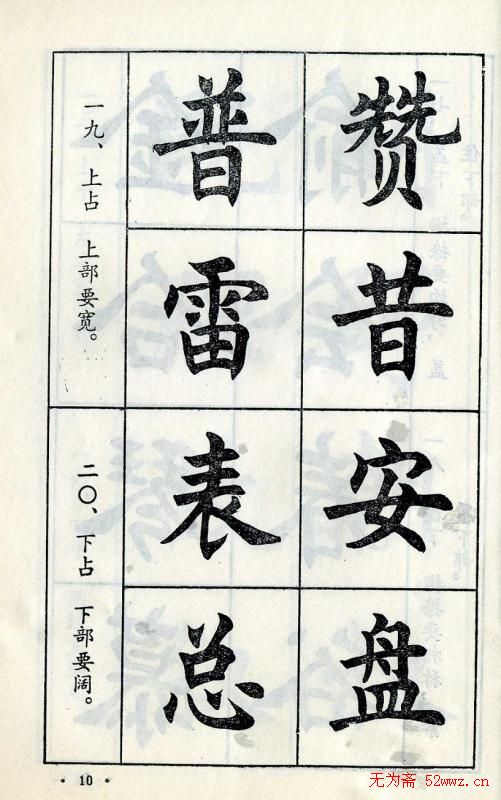 赞
昔
安
盘
普
雷
表
总
一九、上占 上部要宽。
二〇、下占 下部要阔。
· 10 ·
无为斋 52wwz.cn